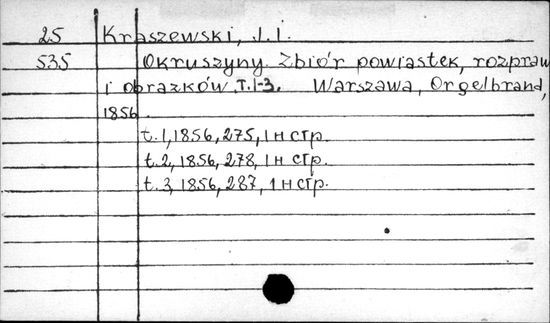 25 Kraszewski, J. I.
535 Okruszyny. Zbiór powiastek, rozpraw
i obrazków T. 1-3. Warszawa, Orgelbrand,
1856.
t. 1, 1856, 275, 1 н стр.
t. 2, 1856, 278, 1 н стр.
t. 3, 1856, 287, 1 н стр.